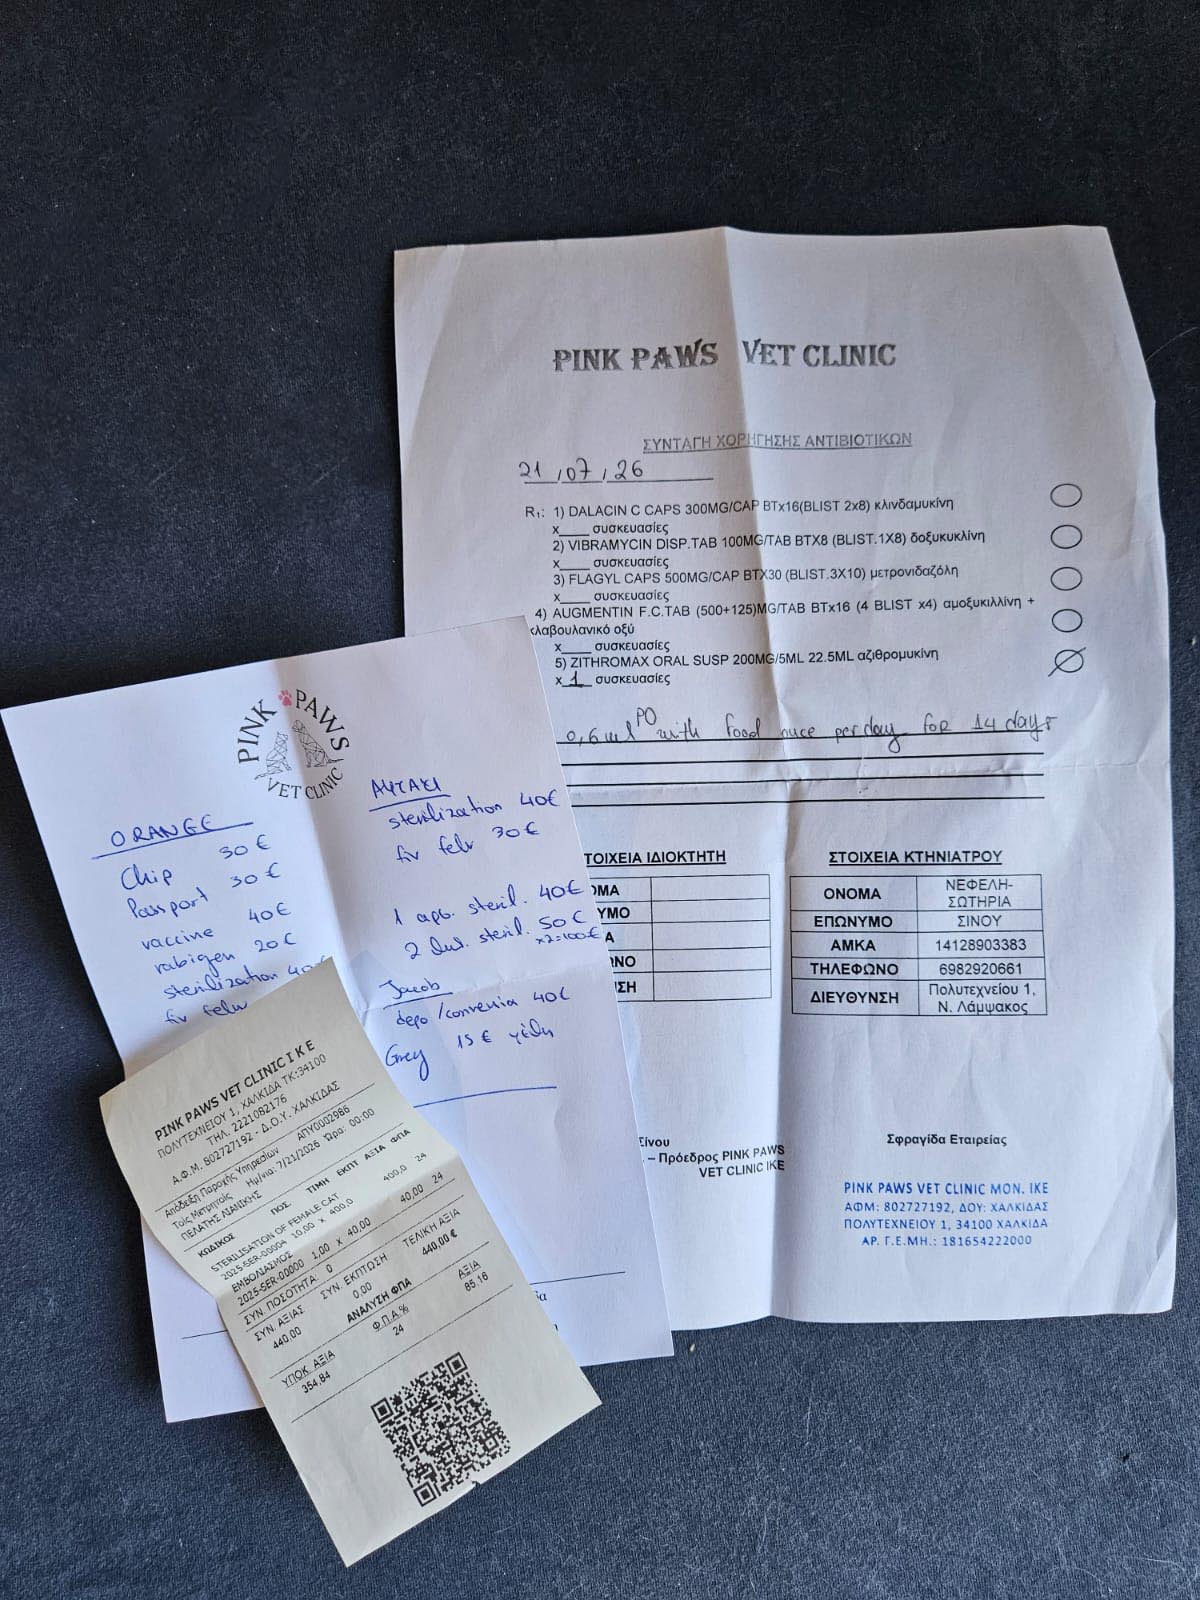 PINK PAWS VET CLINIC
ΣΥΝΤΑΓΗ ΧΟΡΗΓΗΣΗΣ ΑΝΤΙΒΙΟΤΙΚΩΝ
21 / 07 / 26
R₁: 1) DALACIN C CAPS 300MG/CAP BTx16(BLIST 2x8) κλινδαμυκίνη
x____ συσκευασίες
2) VIBRAMYCIN DISP.TAB 100MG/TAB BTX8 (BLIST.1X8) δοξυκυκλίνη
x____ συσκευασίες
3) FLAGYL CAPS 500MG/CAP BTX30 (BLIST.3X10) μετρονιδαζόλη
x____ συσκευασίες
4) AUGMENTIN F.C.TAB (500+125)MG/TAB BTx16 (4 BLIST x4) αμοξυκιλλίνη +
κλαβουλανικό οξύ
x____ συσκευασίες
5) ZITHROMAX ORAL SUSP 200MG/5ML 22.5ML αζιθρομυκίνη
x 1 συσκευασίες
0,6 ml PO with food once per day for 14 days
ΤΟΙΧΕΙΑ ΙΔΙΟΚΤΗΤΗ
ΟΜΑ
ΥΜΟ
Α
ΩΝΟ
ΝΣΗ
ΣΤΟΙΧΕΙΑ ΚΤΗΝΙΑΤΡΟΥ
ΟΝΟΜΑ ΝΕΦΕΛΗ-ΣΩΤΗΡΙΑ
ΕΠΩΝΥΜΟ ΣΙΝΟΥ
ΑΜΚΑ 14128903383
ΤΗΛΕΦΩΝΟ 6982920661
ΔΙΕΥΘΥΝΣΗ Πολυτεχνείου 1, Ν. Λάμψακος
Σίνου
– Πρόεδρος PINK PAWS
VET CLINIC IKE
Σφραγίδα Εταιρείας
PINK PAWS VET CLINIC MON. IKE
ΑΦΜ: 802727192, ΔΟΥ: ΧΑΛΚΙΔΑΣ
ΠΟΛΥΤΕΧΝΕΙΟΥ 1, 34100 ΧΑΛΚΙΔΑ
ΑΡ. Γ.Ε.ΜΗ.: 181654222000
PINK PAWS
VET CLINIC
ORANGE
Chip 30 €
Passport 30 €
vaccine 40€
rabigen 20€
sterilization 40€
fiv felv
ΑΥΤΑΚΙ
sterilization 40€
fiv felv 30€
1 αρσ. steril. 40€
2 θηλ. steril. 50€
x2=100€
Jacob
depo/convenia 40€
Grey 15 €
PINK PAWS VET CLINIC I K E
ΠΟΛΥΤΕΧΝΕΙΟΥ 1, ΧΑΛΚΙΔΑ ΤΚ:34100
ΤΗΛ. 2221082176
Α.Φ.Μ. 802727192 - Δ.Ο.Υ. ΧΑΛΚΙΔΑΣ
Απόδειξη Παροχής Υπηρεσιών ΑΠΥ0002986
Τοις Μετρητοίς Ημ/νια: 7/21/2026 Ώρα: 00:00
ΠΕΛΑΤΗΣ ΛΙΑΝΙΚΗΣ
ΚΩΔΙΚΟΣ ΠΟΣ. ΤΙΜΗ ΕΚΠΤ ΑΞΙΑ ΦΠΑ
STERILISATION OF FEMALE CAT
2025-SER-00004 10,00 x 400,0 400,0 24
ΕΜΒΟΛΙΑΣΜΟΣ
2025-SER-00000 1,00 x 40,00 40,00 24
ΣΥΝ. ΠΟΣΟΤΗΤΑ: 0
ΣΥΝ. ΑΞΙΑΣ ΣΥΝ. ΕΚΠΤΩΣΗ ΤΕΛΙΚΗ ΑΞΙΑ
440,00 0,00 440,00 €
ΑΝΑΛΥΣΗ ΦΠΑ
ΥΠΟΚ. ΑΞΙΑ Φ.Π.Α.% ΑΞΙΑ
354,84 24 85,16